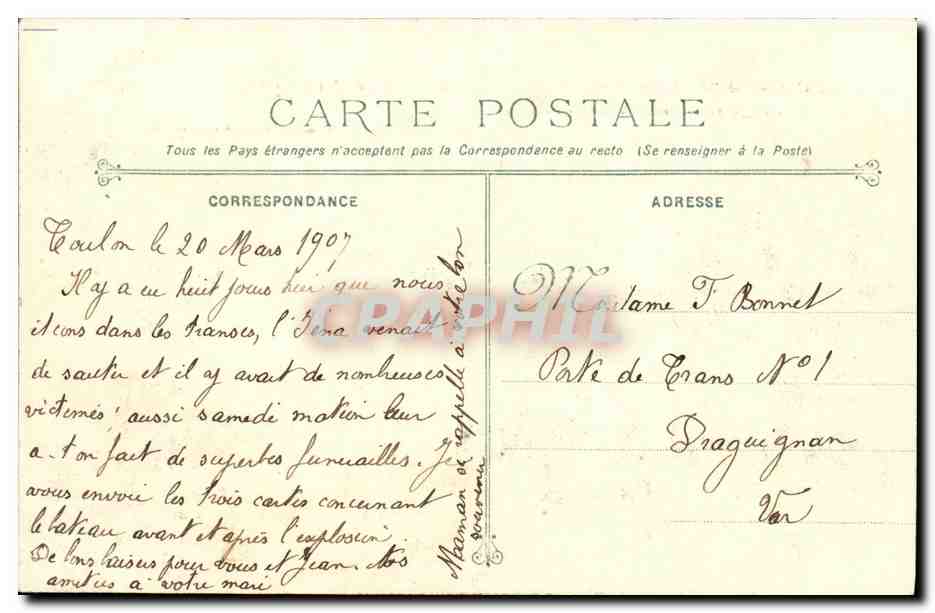 CARTE POSTALE
Tous les Pays étrangers n'acceptent pas la Correspondance au recto (Se renseigner à la Poste)
CORRESPONDANCE
Toulon le 20 Mars 1907
Il y a eu huit jours hier que nous
étions dans les transes, l'Iéna venait
de sauter et il y avait de nombreuses
victimes! aussi samedi matin leur
a-t-on fait de superbes funérailles. Je
vous envoie les trois cartes concernant
le bateau avant et après l'explosion.
De bons baisers pour vous et Jean. Mes
amitiés à votre mari
Maman se rappelle à votre bon
souvenir
ADRESSE
Madame F. Bonnet
Porte de Trans No 1
Draguignan
Var
CPAPHIL